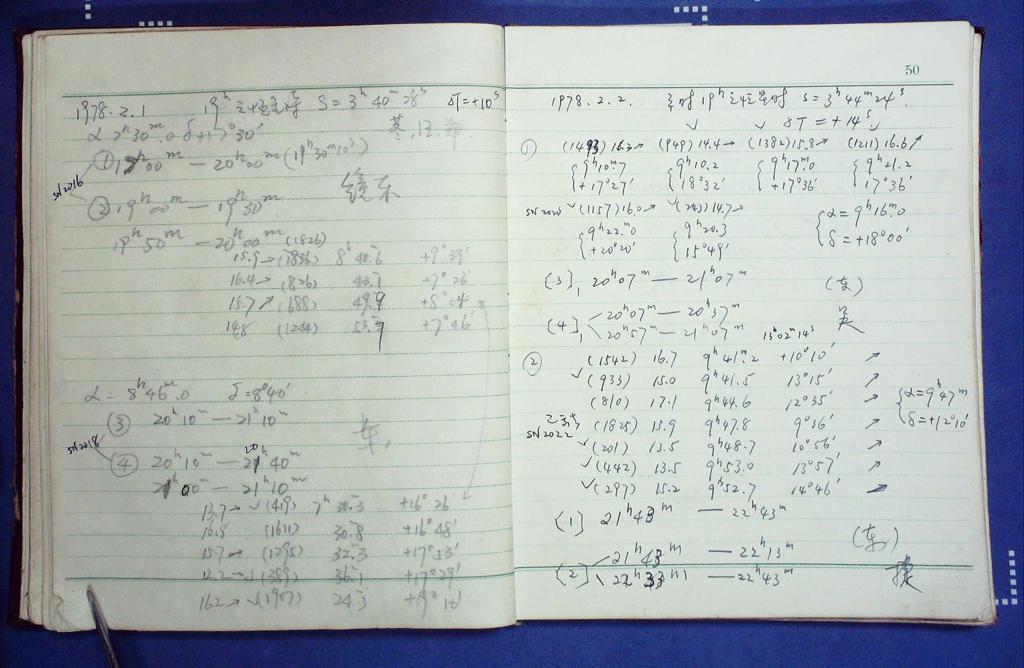 1978.2.1 19ʰ S = 3ʰ 40ᵐ 28ˢ δT = +10ˢ
α 7ʰ30ᵐ.0 δ+17°30′
① 19ʰ00ᵐ — 20ʰ00ᵐ (19ʰ30ᵐ10ˢ)
SN2016
② 19ʰ00ᵐ — 19ʰ30ᵐ
19ʰ50ᵐ — 20ʰ00ᵐ (1826)
15.9 → (1836) 8ʰ 40.6 +9° 39′
16.4 → (826) 43.1 +7° 26′
15.7 ↗ (688) 49.9 +8° 04′
14.8 (1244) 53.7 +7° 46′
α = 8ʰ46ᵐ.0 δ = 8°40′
③ 20ʰ10ᵐ — 21ʰ10ᵐ
SN2018
④ 20ʰ10ᵐ — 20ʰ40ᵐ
21ʰ00ᵐ — 21ʰ10ᵐ
13.7 → √(419) 7ʰ 30.3 +16° 26′
16.8 (1611) 30.8 +16° 48′
15.7 → (1295) 32.3 +17° 53′
12.2 → √(389) 36.1 +17° 29′
16.2 → √(1907) 24.3 +19° 16′
50
1978.2.2. 19ʰ S = 3ʰ44ᵐ24ˢ.
δT = +14ˢ
① (1493) 16.3 → (949) 14.4 → (1382) 15.8 → (1211) 16.6 ↗
9ʰ10ᵐ.7 9ʰ10.2 9ʰ17ᵐ.0 9ʰ21.2
+17°27′ 18°32′ +17°36′ 17°36′
SN2020 √(1157) 16.0 → √(243) 14.7 →
9ʰ22ᵐ.0 9ʰ20.3 α = 9ʰ16ᵐ.0
+20°20′ 15°49′ δ = +18°00′
[3] 20ʰ07ᵐ — 21ʰ07ᵐ
[4] 20ʰ07ᵐ — 20ʰ37ᵐ
20ʰ57ᵐ — 21ʰ07ᵐ 13ʰ02ᵐ14ˢ
② (1542) 16.7 9ʰ41ᵐ.2 +10°10′ ↗
√(933) 15.0 9ʰ41.5 13°15′ ↗
(810) 17.1 9ʰ44.6 12°35′ ↗ α = 9ʰ47ᵐ
(1825) 15.9 9ʰ47.8 9°36′ ↗ δ = +12°10′
SN2022 √(201) 13.5 9ʰ48.7 10°56′ ↗
√(442) 13.5 9ʰ53.0 13°57′ ↗
√(297) 15.2 9ʰ52.7 14°46′ →
[1] 21ʰ43ᵐ — 22ʰ43ᵐ
[2] 21ʰ43ᵐ — 22ʰ13ᵐ
22ʰ33ᵐ — 22ʰ43ᵐ